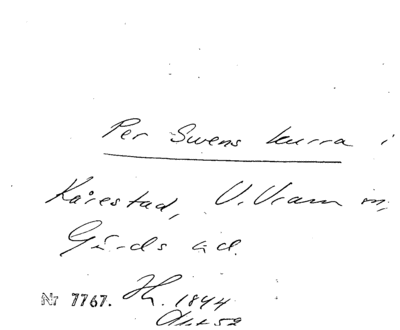 Per Swens kurra i
Kårestad, V. Vram m,
Gärds hd.
Nr 7767. Hl. 1844